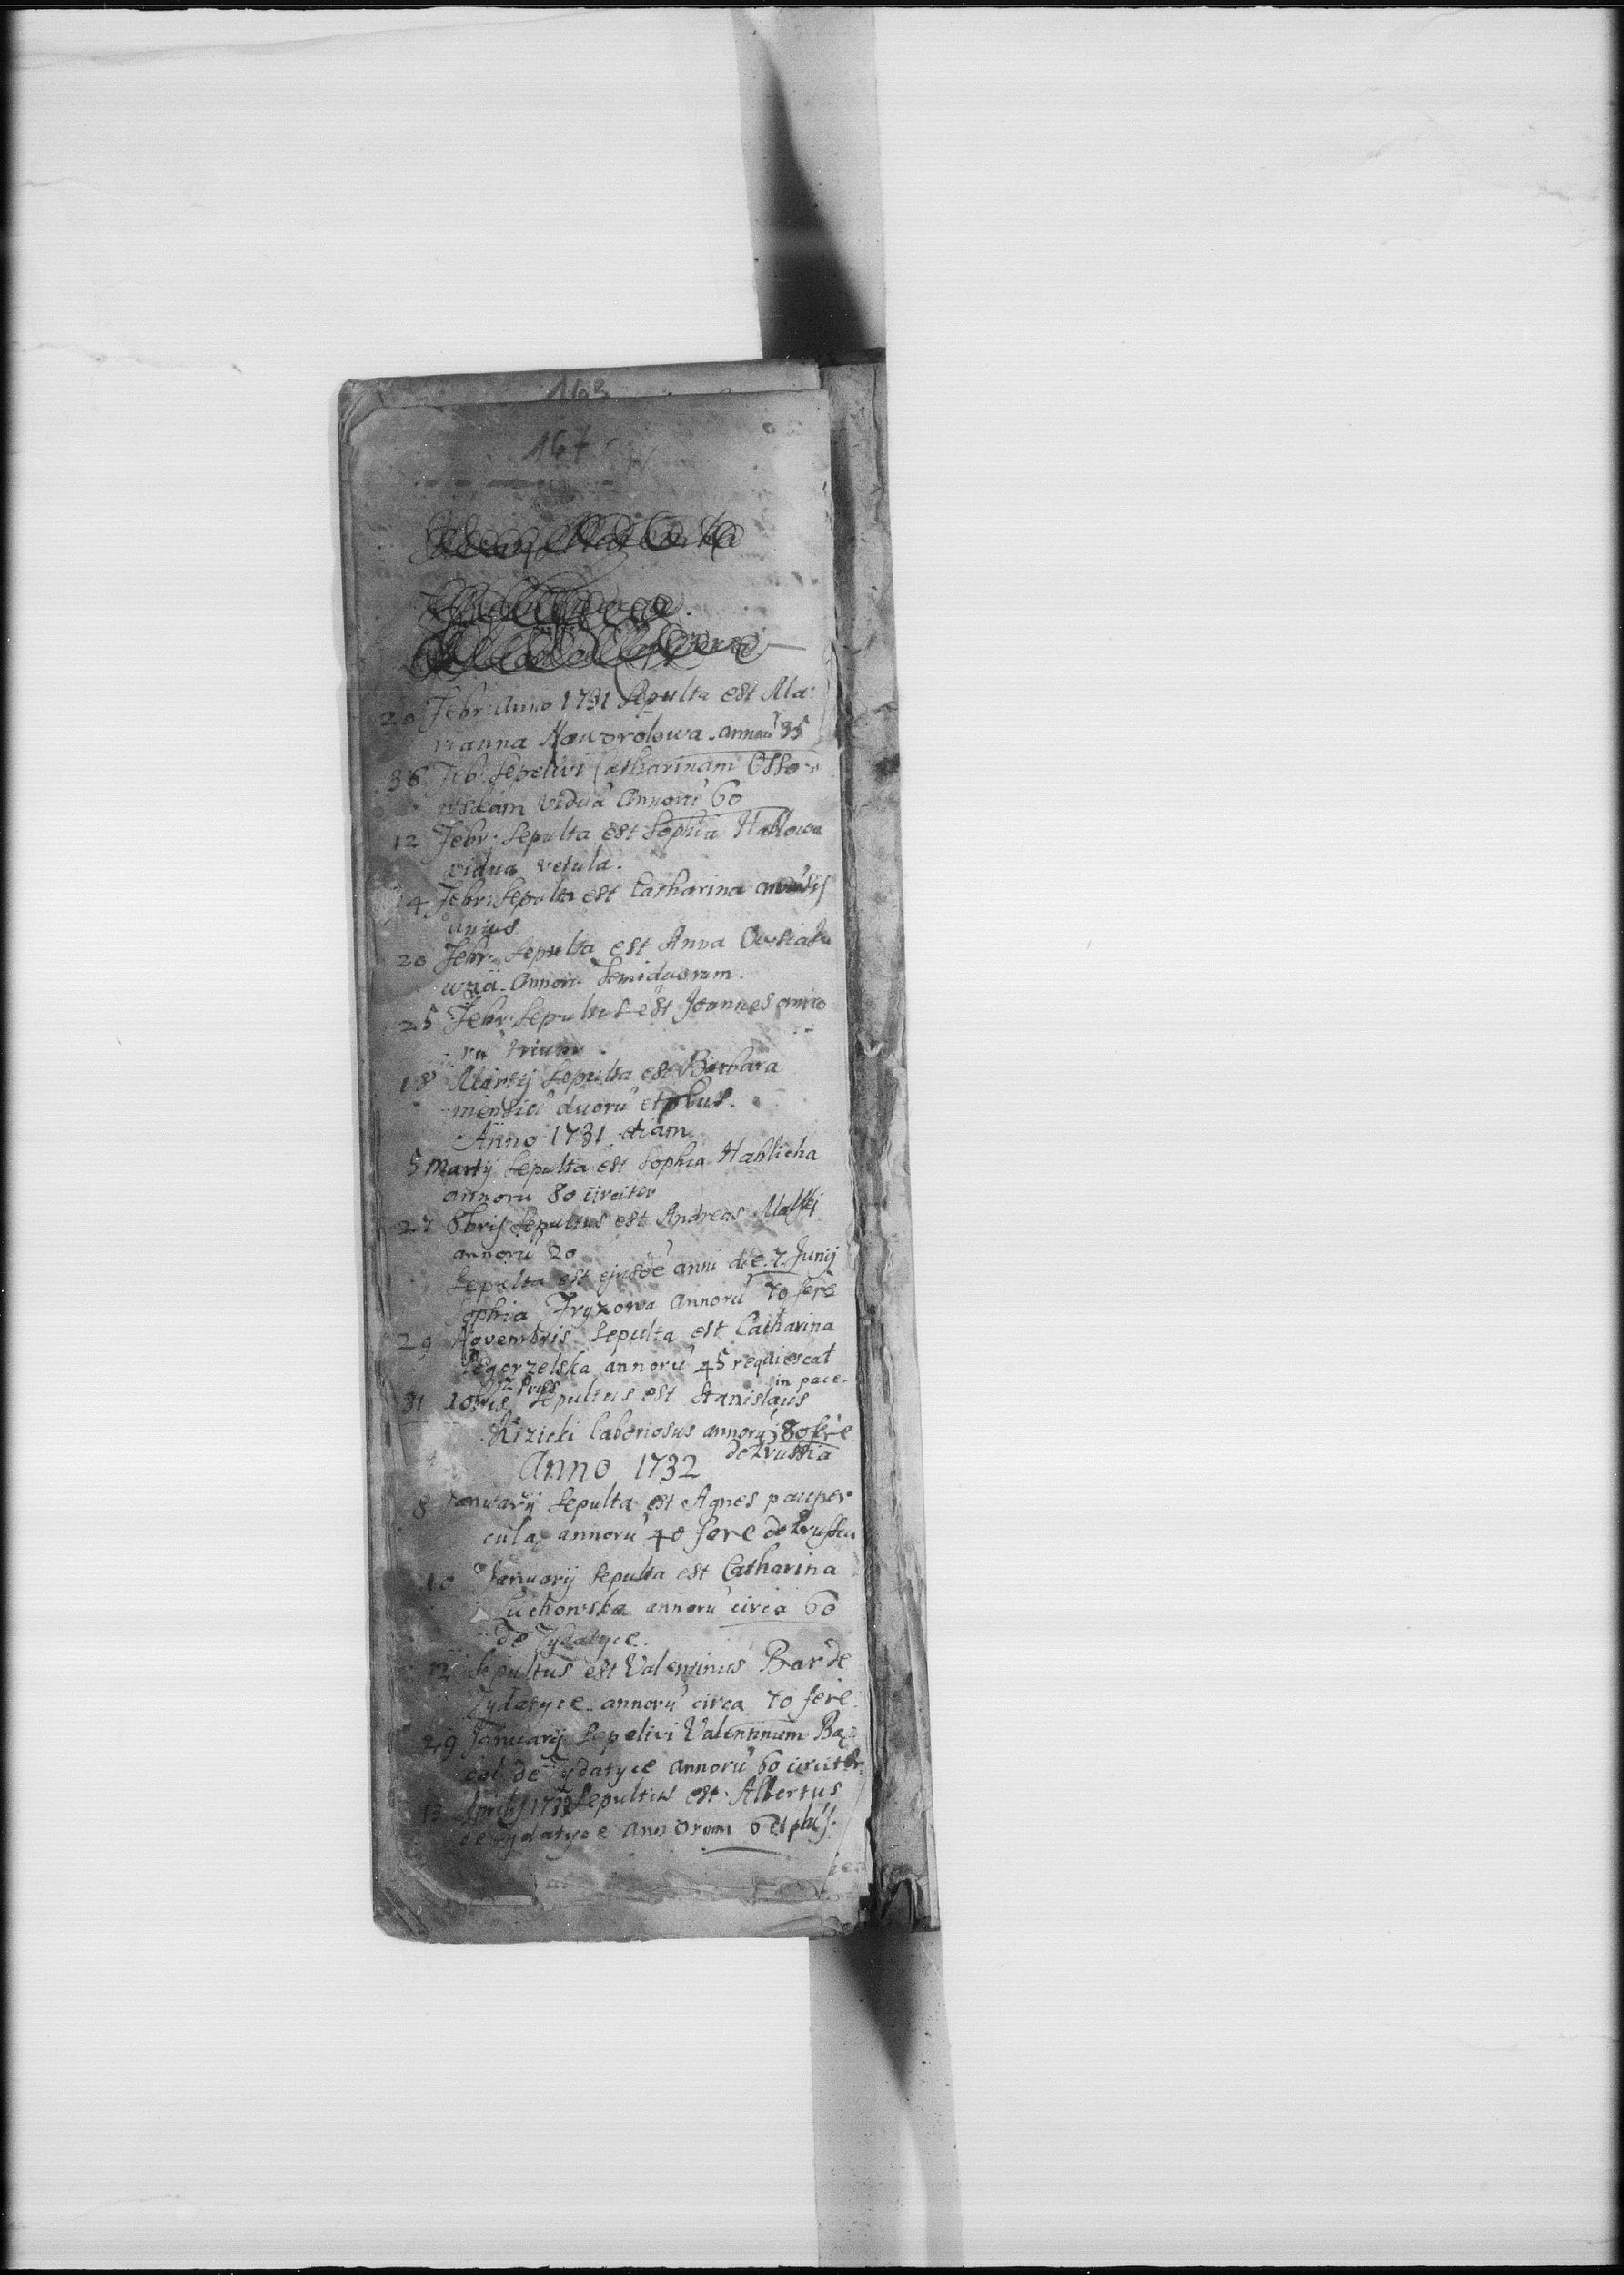 163
167
20 Febr: Anno 1731 Sepulta est Ma:
rianna Naworolowa annorũ 35
Feb: Sepelivi Catharinam Osso-
wskam viduã annorũ 60
12 Febr: Sepulta est Sophia Hablowa
vidua vetula.
14 Febr: Sepulta est Catharina
unius
20 Febr: Sepulta est Anna
annorũ Semiduorum.
25 Febr: Sepultus est Joannes anno
rũ trium
18 Martij Sepulta est Barbara
mensiũ duorũ et plus.
Anno 1731 etiam
5 Martij Sepulta est Sophia Hablicha
annorũ 80 circiter
27 8bris Sepultus est Andreas Malski
annorũ 20
Sepulta est ejusdẽ anni die 7. Junij
Sophia Fryzowa annorũ 70 fere
29 Novembris Sepulta est Catharina
Pogorzelska annorũ 45 requiescat
in pace.
31 10bris Sepultus est Stanislaus
Rizicki laboriosus annorũ 80 fere
de Prussia
Anno 1732
8 Januarij Sepulta est Agnes pauper
cula annorũ 40 fere de Prussia
10 Januarij Sepulta est Catharina
Luchowska annorũ circa 60
de Zydatyce.
12 Sepultus est Valentinus Bar de
Zydatyce annorũ circa 70 fere.
29 Januarij Sepelivi Valentinum Ba
cal de Zydatyce annorũ 60 circiter
13 Aprilis 1732 Sepultus est Albertus
de Zydatyce annorum 6 et plus.